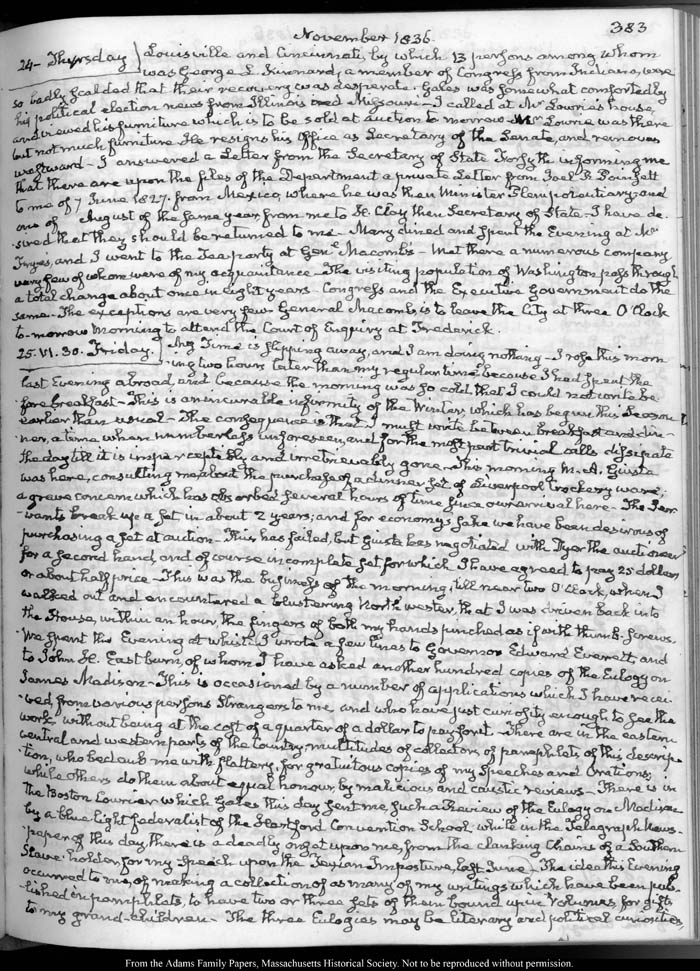 November 1836.
383
24– Thursday
Louisville and Cincinnati, by which 13 persons among whom
was George L. Kinnard, a member of Congress from Indiana, were
so badly scalded that their recovery was desperate. Gales was somewhat comforted by
his political election news from Illinois and Missouri– I called at Mr Lowrie's house
and viewed his furniture which is to be sold at auction to morrow– Mr Lowrie was there
but not much furniture. He resigns his Office as Secretary of the Senate, and removes
westward– I answered a Letter from the Secretary of State Forsyth informing me
that there are upon the files of the Department a private Letter from Joel R. Poinsett
to me of 7 June 1827. from Mexico, where he was then Minister Plenipotentiary; and
one of August of the same year from me to H. Clay then Secretary of State– I have de-
sired that they should be returned to me– Mary dined and spent the Evening at Mr
Frye's, and I went to the Tea party at Genl Macomb's– Met there a numerous company
very few of whom were of my acquaintance– The visiting population of Washington pass through
a total change about once in eight years– Congress and the Executive Government do the
same– The exceptions are very few. General Macomb is to leave the City at three O'Clock
to-morrow Morning to attend the Court of Enquiry at Frederick.
25. VI. 30. Friday.
My Time is slipping away, and I am doing nothing– I rose this morn-
ing two hours later than my regular time because I had spent the
last Evening abroad, and because the morning was so cold that I could not write be-
fore breakfast– This is an incurable infirmity of the Winter, which has begun this Season
earlier than usual– The consequence is that I must write between breakfast and din-
ner, a time when numberless unforeseen, and for the most part trivial calls dissipate
the day till it is imperceptibly and irretrievably gone– This morning M. A. Giusta
was here, consulting me about the purchase of a dinner set of Liverpool Crockery ware;
a grave concern which has absorbed several hours of time since our arrival here– The Ser-
vants break up a set in about 2 years; and for economy's sake we have been desirous of
purchasing a set at auction– This has failed, but Giusta has negotiated with Dyer the auctioneer
for a second hand, and of course incomplete set for which I have agreed to pay 25 dollars,
or about half price– This was the business of the morning, till near two O'Clock, when I
walked out and encountered a blustering North wester, that I was driven back into
the House, within an hour, the fingers of both my hands pinched as if with thumb-screws.
We spent the Evening at whist. I wrote a few lines to Governor Edward Everett, and
to John H. Eastburn, of whom I have asked another hundred copies of the Eulogy on
James Madison– This is occasioned by a number of applications which I have recei-
ved, from various persons Strangers to me, and who have just curiosity enough to see the
work, without being at the cost of a quarter of a dollar to pay for it– There are in the eastern
central and western parts of the Country, multitudes of collectors of pamphlets of this descrip-
tion, who bedaub me with flattery, for gratuitous copies of my Speeches and Orations;
while others do them about equal honour, by malicious and caustic reviews– There is in
the Boston Courier which Gales this day sent me, such a Review of the Eulogy on Madison
by a blue light federalist of the Hartford Convention School, while in the Telegraph News-
paper of this day, there is a deadly onset upon me, from the clanking Chains of a Southern
Slave-holder, for my Speech upon the Texian Imposture, last June. The idea this Evening
occurred to me, of making a collection of as many of my writings which have been pub-
lished in pamphlets, to have two or three sets of them bound up in Volumes, for gifts
to my grand-children– The three Eulogies may be literary and political curiosities,
From the Adams Family Papers, Massachusetts Historical Society. Not to be reproduced without permission.